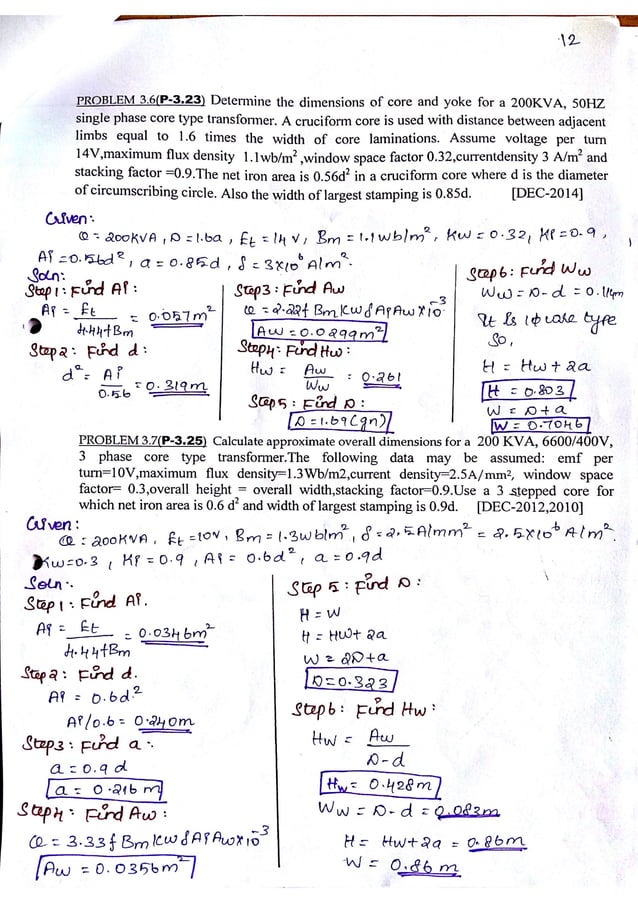 12
PROBLEM 3.6(P-3.23) Determine the dimensions of core and yoke for a 200KVA, 50HZ
single phase core type transformer. A cruciform core is used with distance between adjacent
limbs equal to 1.6 times the width of core laminations. Assume voltage per turn
14V,maximum flux density 1.1wb/m² ,window space factor 0.32,currentdensity 3 A/m² and
stacking factor =0.9.The net iron area is 0.56d² in a cruciform core where d is the diameter
of circumscribing circle. Also the width of largest stamping is 0.85d. [DEC-2014]
Given:
Q = 200KVA, D = 1.6a, Et = 14 V, Bm = 1.1 wb/m², Kw = 0.32, Ki = 0.9,
Ai = 0.56d², a = 0.85d, δ = 3×10⁶ A/m².
Soln:
Step 1: Find Ai:
Ai = Et / 4.44fBm = 0.057m²
Step 2: Find d:
d² = Ai / 0.56 = 0.319m
Step 3: Find Aw
Q = 2.22f Bm Kw δ Ai Aw × 10⁻³
Aw = 0.0299m²
Step 4: Find Hw:
Hw = Aw / Ww = 0.261
Step 5: Find D:
D = 1.69 (gn)
Step 6: Find Ww
Ww = D - d = 0.114m
It is 1φ case type
So,
H = Hw + 2a
H = 0.803
W = D + a
W = 0.7046
PROBLEM 3.7(P-3.25) Calculate approximate overall dimensions for a 200 KVA, 6600/400V,
3 phase core type transformer.The following data may be assumed: emf per
turn=10V,maximum flux density=1.3Wb/m2,current density=2.5A/mm², window space
factor= 0.3,overall height = overall width,stacking factor=0.9.Use a 3 stepped core for
which net iron area is 0.6 d² and width of largest stamping is 0.9d. [DEC-2012,2010]
Given:
Q = 200KVA, Et = 10V, Bm = 1.3wb/m², δ = 2.5A/mm² = 2.5×10⁶ A/m².
Kw = 0.3, Ki = 0.9, Ai = 0.6d², a = 0.9d
Soln:
Step 1: Find Ai.
Ai = Et / 4.44fBm = 0.0346m²
Step 2: Find d.
Ai = 0.6d²
Ai/0.6 = 0.240m
Step 3: Find a:
a = 0.9 d
a = 0.216 m
Step 4: Find Aw:
Q = 3.33f Bm Kw δ Ai Aw × 10⁻³
Aw = 0.0356m²
Step 5: Find D:
H = W
H = Hw + 2a
W = 2D + a
D = 0.323
Step 6: Find Hw:
Hw = Aw / D-d
Hw = 0.428m
Ww = D - d = 0.083m
H = Hw + 2a = 0.86m
W = 0.86 m